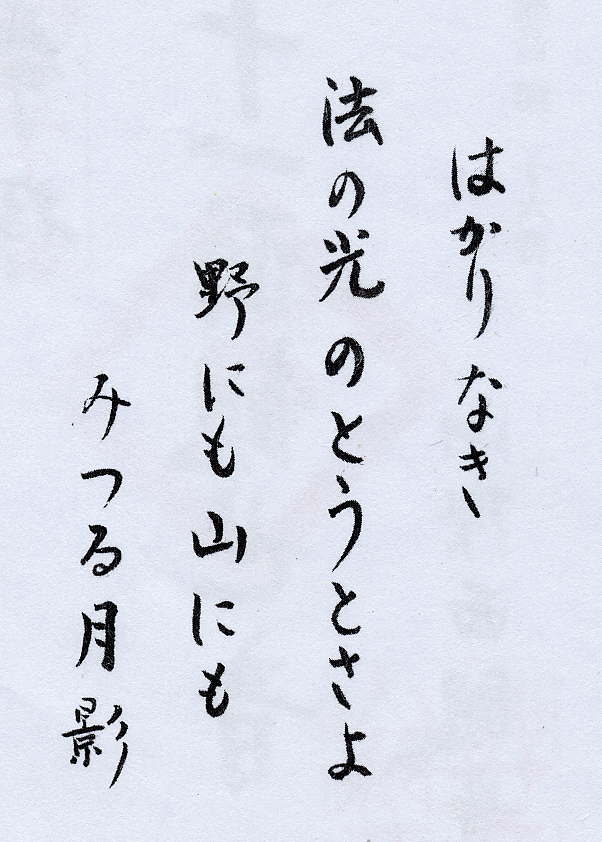 はかりなき
法の光のとうとさよ
野にも山にも
みつる月影